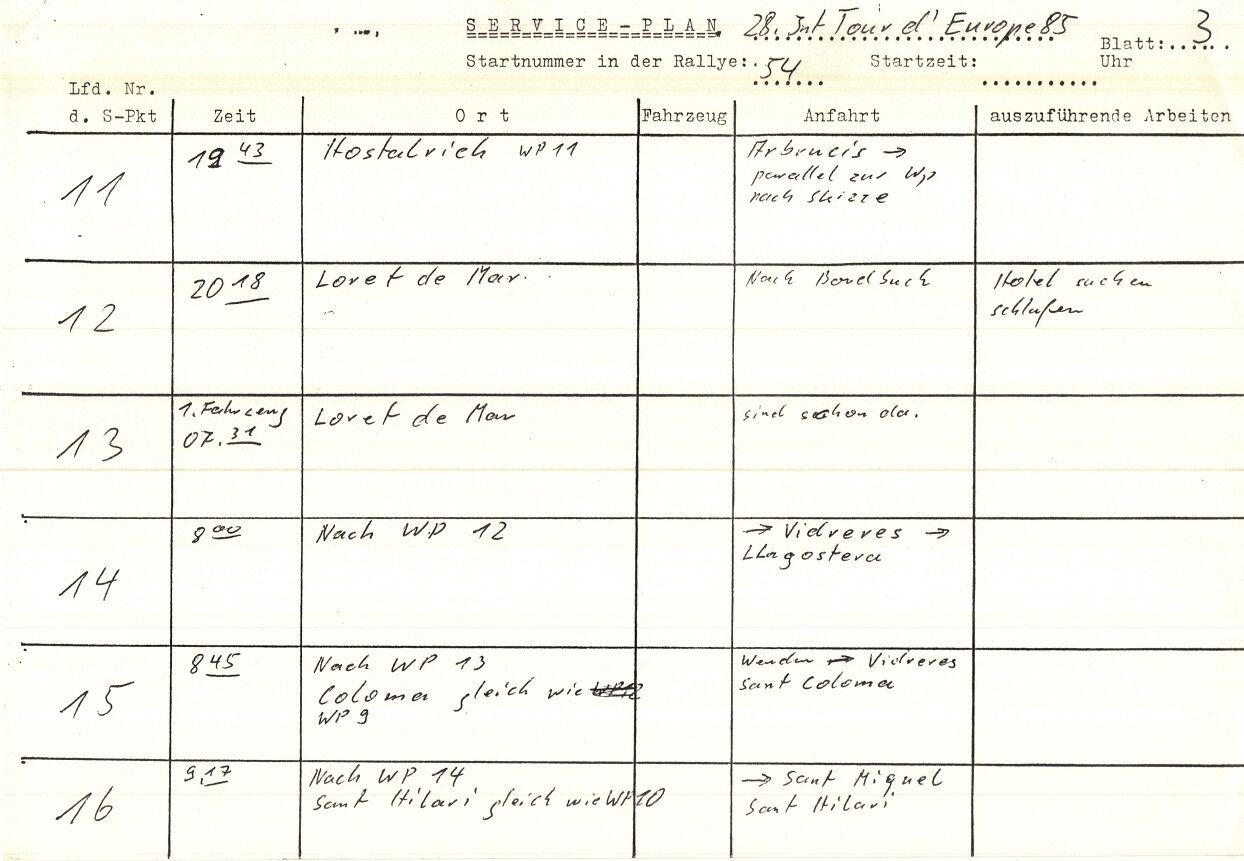 SERVICE-PLAN 28. Int Tour d' Europe 85
Blatt: 3
Startnummer in der Rallye: 54 Startzeit: Uhr
Lfd. Nr.
d. S-Pkt Zeit Ort Fahrzeug Anfahrt auszuführende Arbeiten
11 19 43 Hostalrich WP 11 Arbrucis →
parallel zur Wp
nach Skizze
12 20 18 Loret de Mar. Nach Bordbuch Hotel suchen
schlafen
13 1. Fahrzeug Loret de Mar sind schon da.
07.31
14 8 00 Nach WP 12 → Vidreres →
LLagostera
15 8 45 Nach WP 13 Wenden → Vidreres
Coloma gleich wie WP 12 Sant Coloma
WP 9
16 9.17 Nach WP 14 → Sant Miquel
Sant Hilari gleich wie WP 10 Sant Hilari